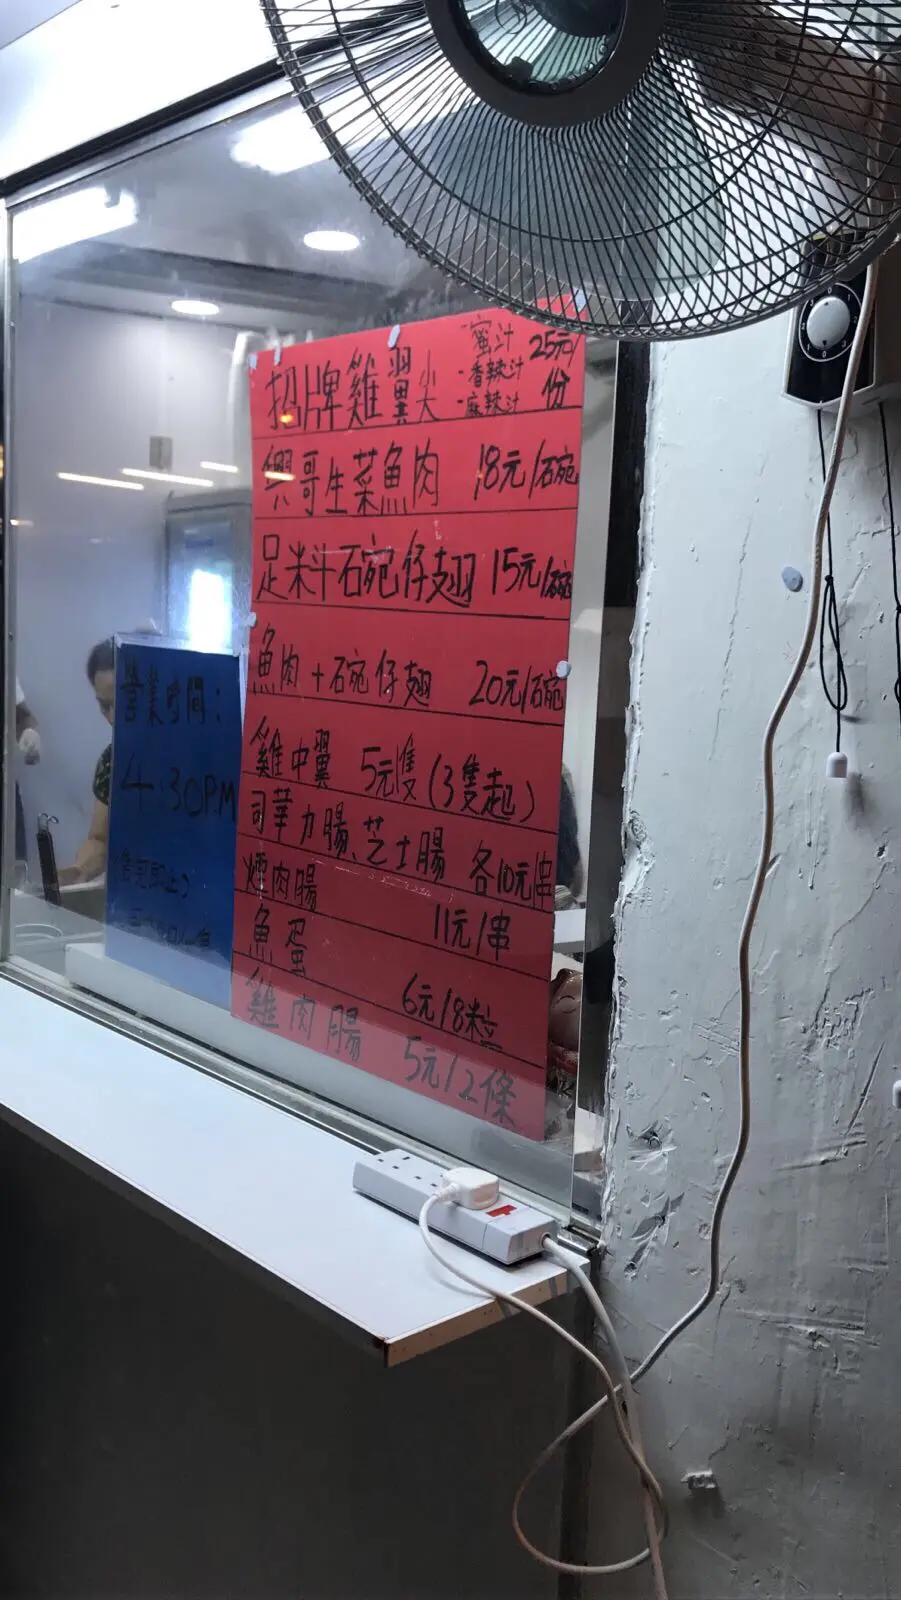 招牌雞翼尖 -蜜汁 -香辣汁 -麻辣汁 25元/份
興哥生菜魚肉 18元/碗
足料碗仔翅 15元/碗
魚肉+碗仔翅 20元/碗
雞中翼 5元隻(3隻起)
司華力腸、芝士腸 各10元串
煙肉腸 11元/串
魚蛋 6元/8粒
雞肉腸 5元/2條
營業時間:
4:30P.M
(售完即止)